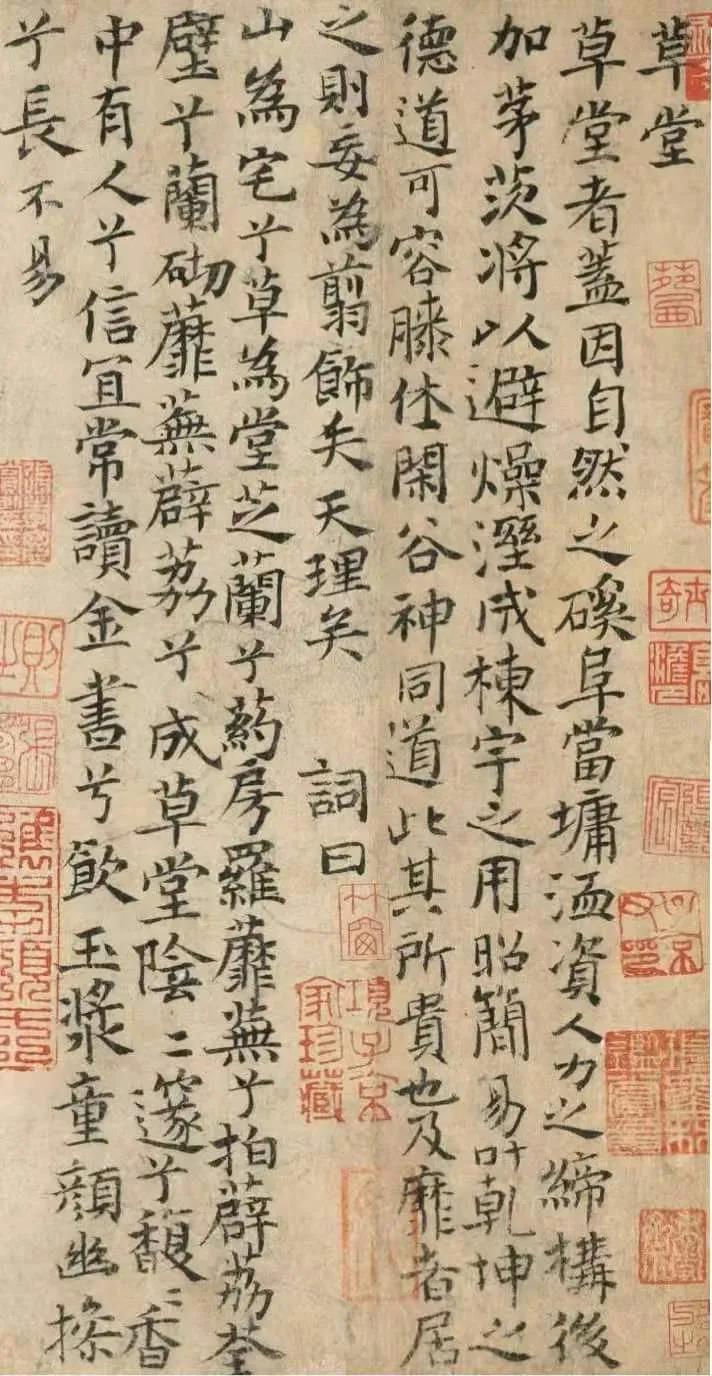 草堂
草堂者蓋因自然之磎阜當墉洫資人力之締構後
加茅茨將以避燥溼成棟宇之用昭簡易叶乾坤之
德道可容膝休閑谷神同道此其所貴也及靡者居
之則妄為翦飾失天理矣 詞曰
山為宅兮草為堂芝蘭兮葯房羅蘼蕪兮拍薜荔荃
壁兮蘭砌蘼蕪薜荔兮成草堂陰〻邃兮馥〻香
中有人兮信宜常讀金書兮飲玉漿童顏幽操
兮長不易
項子京
家珍藏